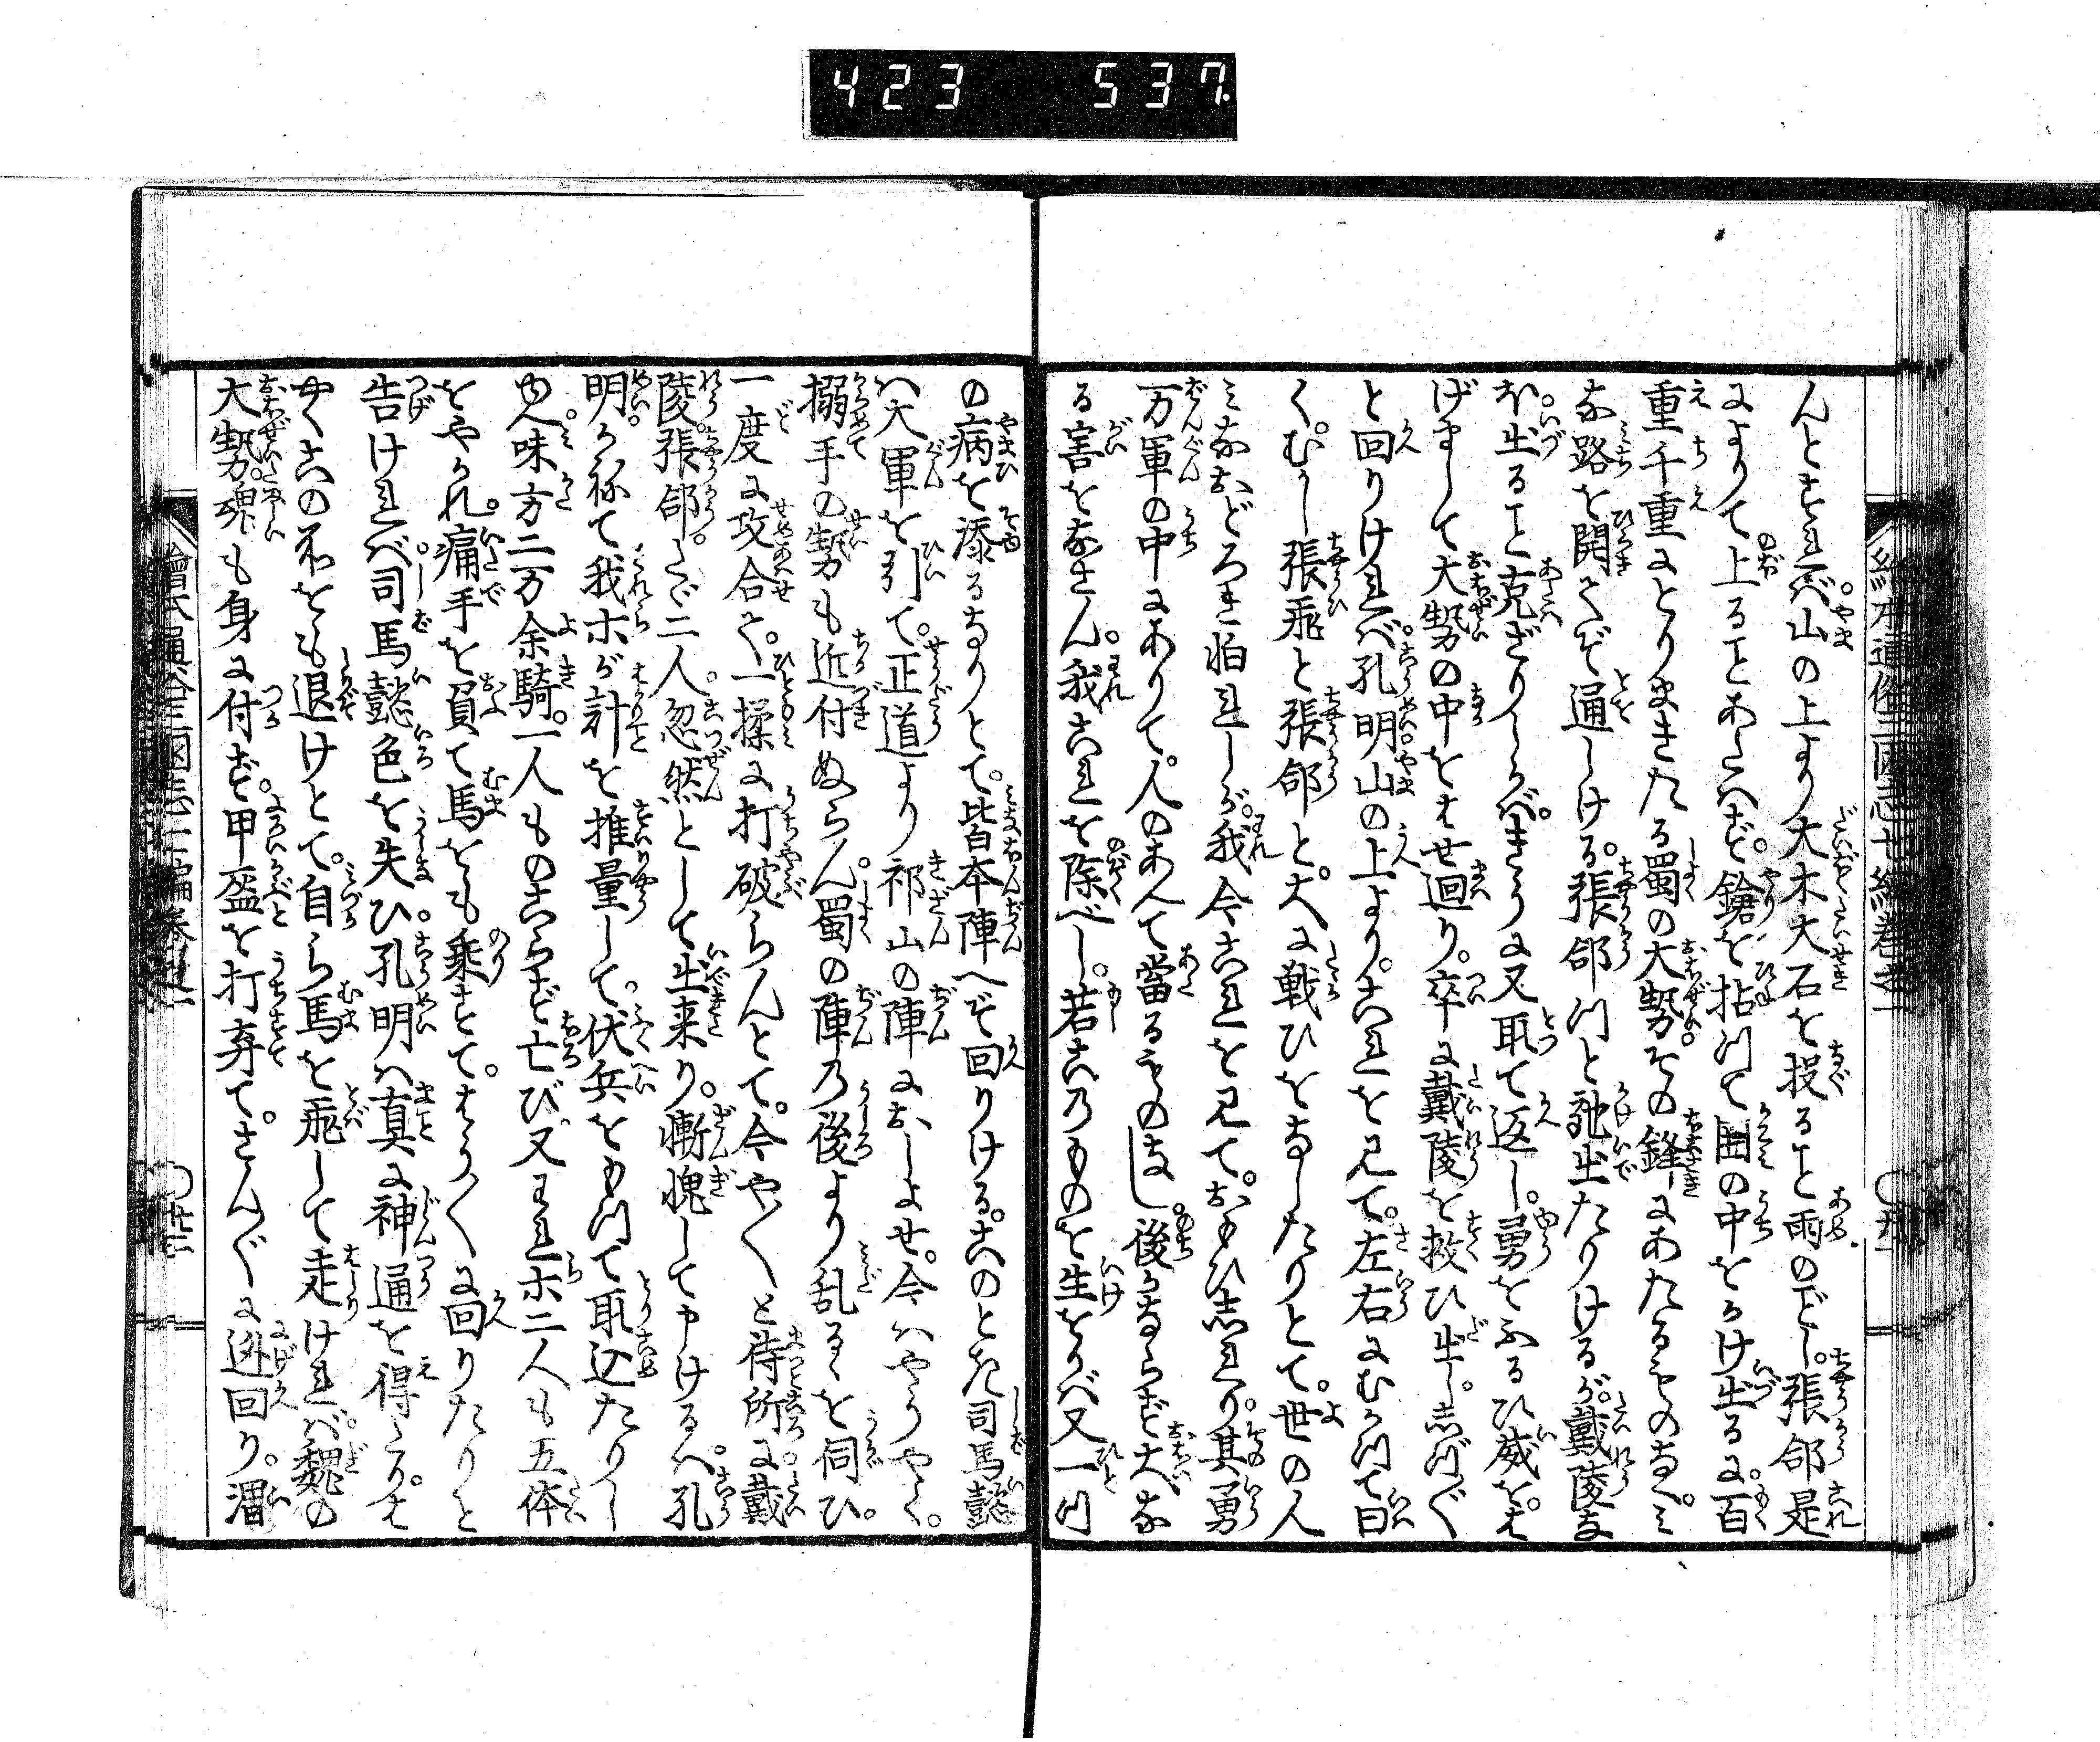 423 537.
んとすれバ。山の上より大木大石を投ること雨のごとし。張郃是
によりて上ることあたハず。鎗を拈つて囲の中をかけ出るに。百
重千重にとりまきたる蜀の大勢。その鋒にあたるものなく。ミ
な路を開てぞ通しける。張郃つと駈出たりけるが。戴陵な
ほ。出ること克ざりしかバ。きうに又取て返し。勇をふるひ威を。は
げまして大勢の中をはせ廻り。卒に戴陵を救ひ出し。しづ〴〵
と回りけれバ。孔明山の上より。これを見て。左右にむかつて曰
く。むかし張飛と張郃と。大に戦ひをなしたりとて。世の人
ミなおどろき怕れしが。我今これを見て。おもひ知れり。其勇
万軍の中にありて。人のあへて當るものなし。後かならず大な
る害をなさん。我これを除べし。若このものを生をかバ又一つ
の病を添るなりとて。皆本陣へぞ回りける。このとき司馬懿
ハ大軍を引て。正道より祁山の陣におしよせ。今ハやうやく。
搦手の勢も近付ぬらん。蜀の陣乃後より乱るゝを伺ひ。
一度に攻合せ。一揉に打破らんとて。今や〳〵と待所に。戴
陵。張郃。たゞ二人。忽然として出来り。慚愧して申けるハ。孔
明。かねて我ホが計を推量して。伏兵をもつて取込たりし
ゆへ。味方二万余騎。一人ものこらず亡び。又われホ二人も五体
をやぶれ。痛手を負て馬をも乗すて。はう〳〵に回りたりと
告けれバ。司馬懿色を失ひ。孔明ハ真に神通を得たり。は
やくこの不をも退けとて。自ら馬を飛して走けれバ。魏の
大勢。魂も身に付ず。甲盔を打弃て。さん〴〵に迯回り。渭
繪本通俗三國志七編巻之一